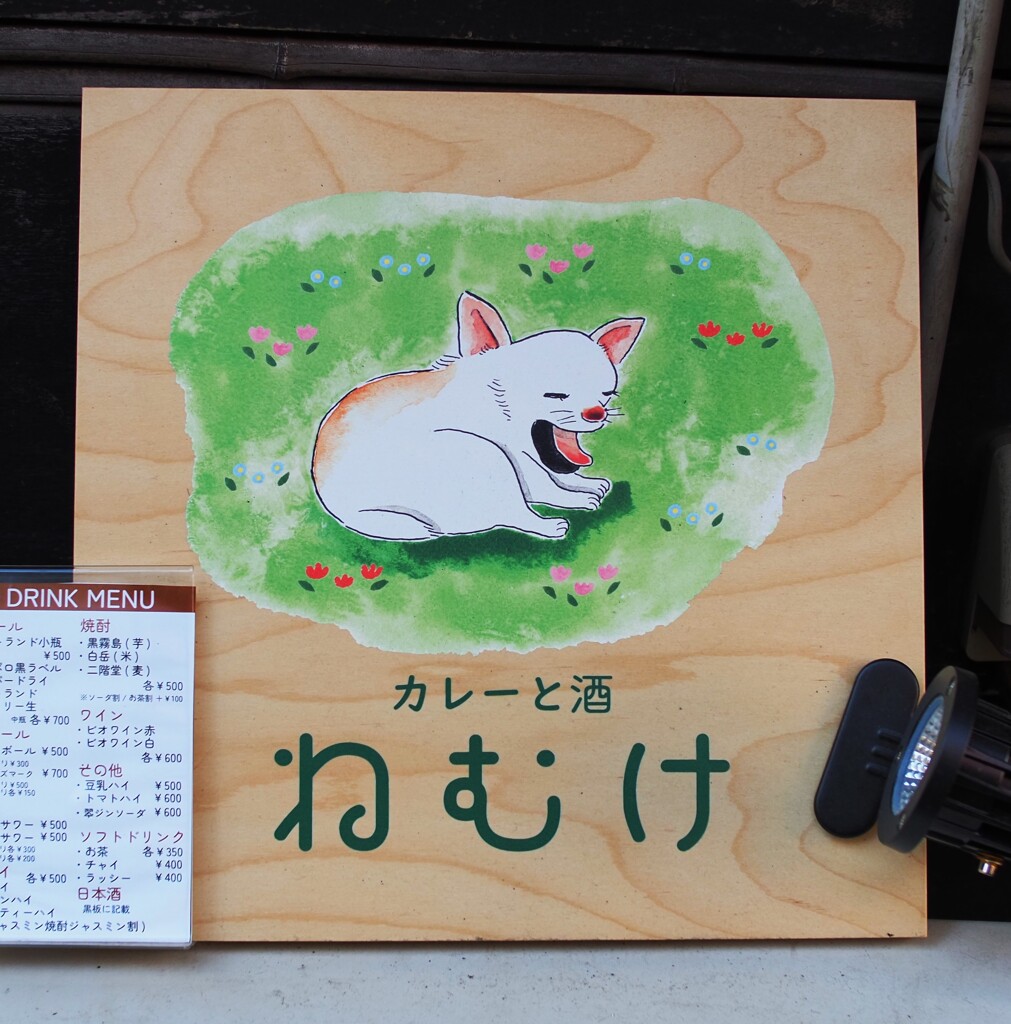 カレーと酒
ねむけ
DRINK MENU
ール
ランド小瓶
¥500
ロ黒ラベル
ードライ
ランド
リー生
中瓶 各¥700
ール
ボール ¥500
リ¥300
ズマーク ¥700
リ¥500
リ各¥150
サワー ¥500
サワー ¥500
リ各¥300
リ各¥200
イ
各¥500
イ
ンハイ
ティーハイ
ャスミン焼酎ジャスミン割)
焼酎
・黒霧島(芋)
・白岳(米)
・二階堂(麦)
各¥500
※ソーダ割/お茶割 +¥100
ワイン
・ビオワイン赤
・ビオワイン白
各¥600
その他
・豆乳ハイ ¥500
・トマトハイ ¥600
・翠ジンソーダ ¥600
ソフトドリンク
・お茶 各¥350
・チャイ ¥400
・ラッシー ¥400
日本酒
黒板に記載